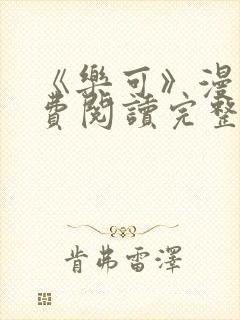 《樂可》漫
費閱讀完整
肯弗雷澤